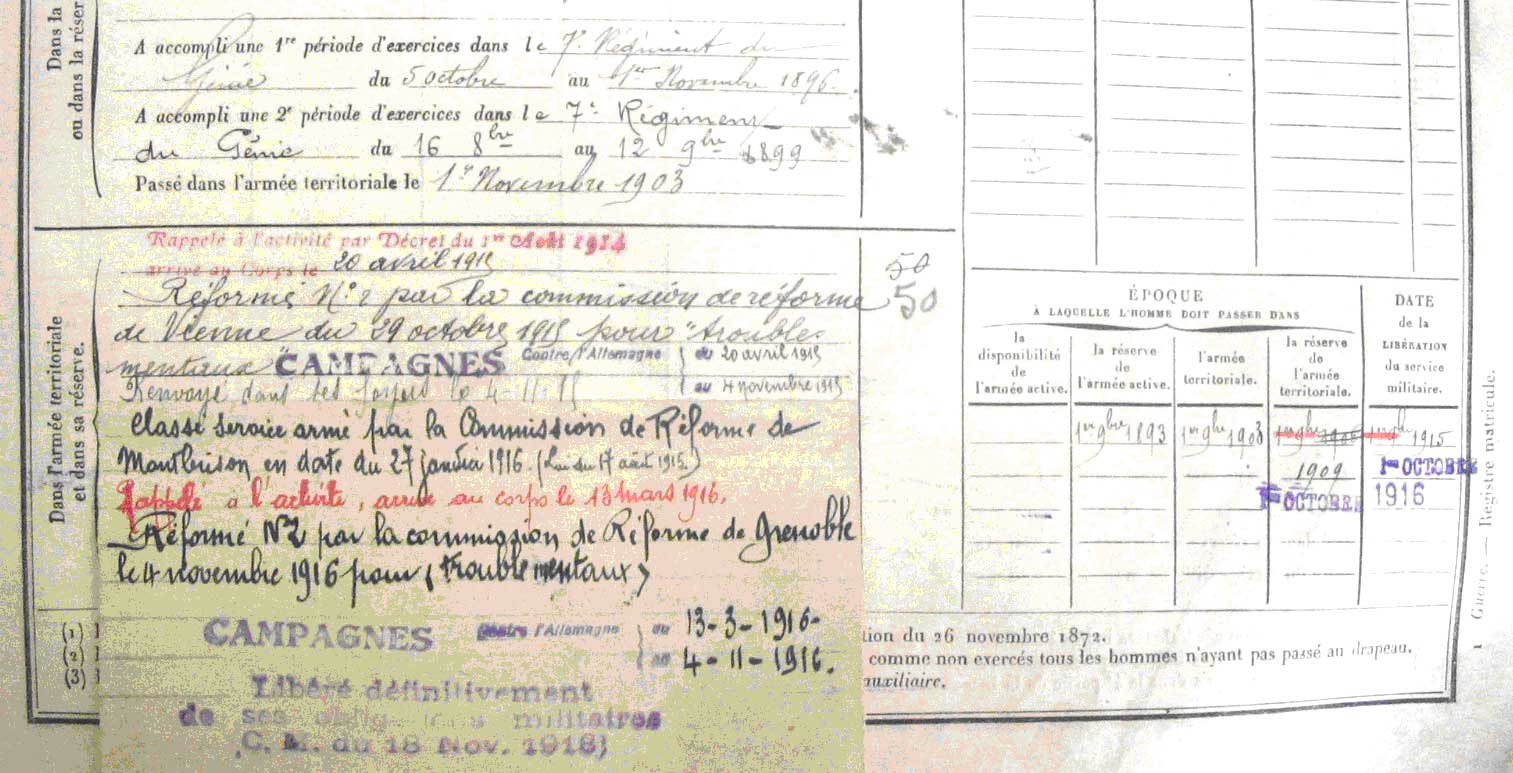 Dans la
ou dans la réser
A accompli une 1re période d'exercices dans le 7e Régiment du
Génie du 5 octobre au 1er Novembre 1896.
A accompli une 2e période d'exercices dans le 7e Régiment
du Génie du 16 8bre au 12 9bre 1899
Passé dans l'armée territoriale le 1er Novembre 1903
Dans l'armée territoriale
et dans sa réserve.
Rappelé à l'activité par Décret du 1er Août 1914
arrivé au Corps le 20 avril 1915
Réformé N°2 par la commission de réforme
de Vienne du 29 octobre 1915 pour "troubles
mentaux" CAMPAGNES Contre l'Allemagne { du 20 avril 1915
au 4 novembre 1915
Renvoyé dans ses foyers le 4-11-15
Classé Service armé par la Commission de Réforme de
Montbrison en date du 27 janvier 1916. (Loi du 17 août 1915.)
Rappelé à l'activité, arrivé au corps le 13 mars 1916.
Réformé N°2 par la commission de Réforme de Grenoble
le 4 novembre 1916 pour (trouble mentaux)
CAMPAGNES Contre l'Allemagne { du 13-3-1916-
au 4-11-1916.
Libéré définitivement
de ses obligations militaires
(C. M. du 18 Nov. 1918)
50
50
ÉPOQUE
À LAQUELLE L'HOMME DOIT PASSER DANS
la
disponibilité
de
l'armée active.
la réserve
de
l'armée active.
l'armée
territoriale.
la réserve
de
l'armée
territoriale.
DATE
de la
LIBÉRATION
du service
militaire.
1er 9bre 1893
1er 9bre 1903
1909
1er OCTOBRE
1915
1er OCTOBRE
1916
(1)
(2)
(3)
tion du 26 novembre 1872.
comme non exercés tous les hommes n'ayant pas passé au drapeau.
auxiliaire.
1 Guerre. — Registre matricule.